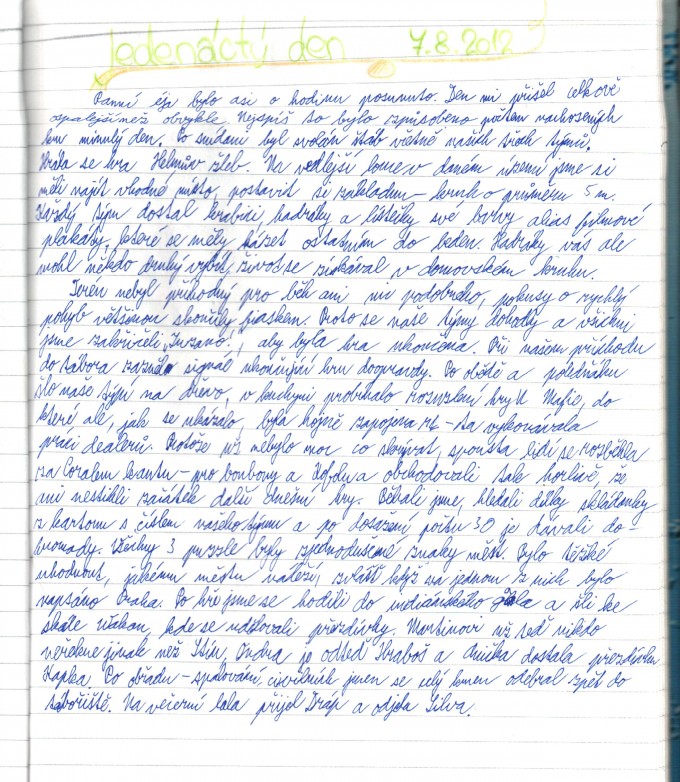 Jedenáctý den 7.8.2012
Ranní éja bylo asi o hodinu posunuto. Den mi přišel celkově
ospalejší než obvykle. Nejspíš to bylo způsobeno počtem nachozených
km minulý den. Po snídani byl svolán štáb včetně našich třech týmů.
Hrála se hra Helmův žleb. Na vedlejší louce v daném území jsme si
měli najít vhodné místo, postavit si základnu – kruh o průměru 5 m.
Každý tým dostal krabici, hadráky a lístečky své barvy alias filmové
plakáty, které se měly házet ostatním do beden. Hadráky vás ale
mohl někdo druhý vybít, život se získával v domovském kruhu.
Terén nebyl příhodný pro běh ani nic podobného, pokusy o rychlý
pohyb většinou skončily fiaskem. Proto se naše týmy dohodly a všichni
jsme zakřičeli „Suzano", aby byla hra ukončena. Při našem příchodu
do tábora zazněl signál ukončující hru doopravdy. Po obědě a poledňáku
šlo naše týpí na dřevo, v kuchyni probíhalo rozuzlení hry U Mafie, do
které ale, jak se ukázalo, byla hojně zapojena – ta vykonávala
práci dealerů. Protože už nebylo moc co skrývat, spousta lidí se rozběhla
za Coralem kantu – pro bonbony a Kofolu a obchodovali tak horlivě, že
ani nestihli začátek další dnešní hry. Běhali jsme, hledali dílky skládanky
z kartonu s číslem našeho týmu a po dosažení počtu 30 je dávali do-
hromady. Všechny 3 puzzle byly zjednodušené znaky měst. Bylo těžké
uhodnout, jakému městu náleží, zvlášť když na jednom z nich bylo
napsáno Praha. Po hře jsme se hodili do indiánského a šli ke
skále wakan, kde se udělovali přezdívky. Martinovi už teď nikdo
neřekne jinak než Stín, Ondra je odteď Hraboš a Anička dostala přezdívku
Kapka. Po obřadu – spalování civilních jmen se celý kmen odebral zpět do
tábořiště. Na večerní lala přijel Dráp a odjela Silva.